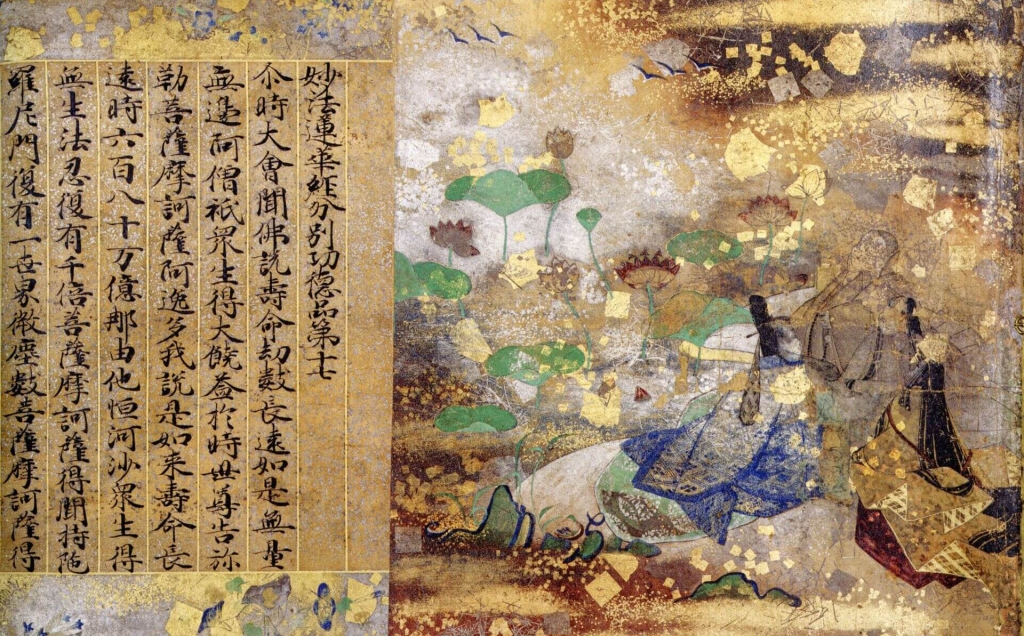 妙法蓮華経分別功徳品第十七
尒時大會聞佛說壽命劫數長遠如是無量
無邊阿僧祇眾生得大饒益於時世尊告弥
勒菩薩摩訶薩阿逸多我說是如来壽命長
遠時六百八十万億那由他恒河沙眾生得
無生法忍復有千倍菩薩摩訶薩得聞持陁
羅尼門復有一世界微塵數菩薩摩訶薩得